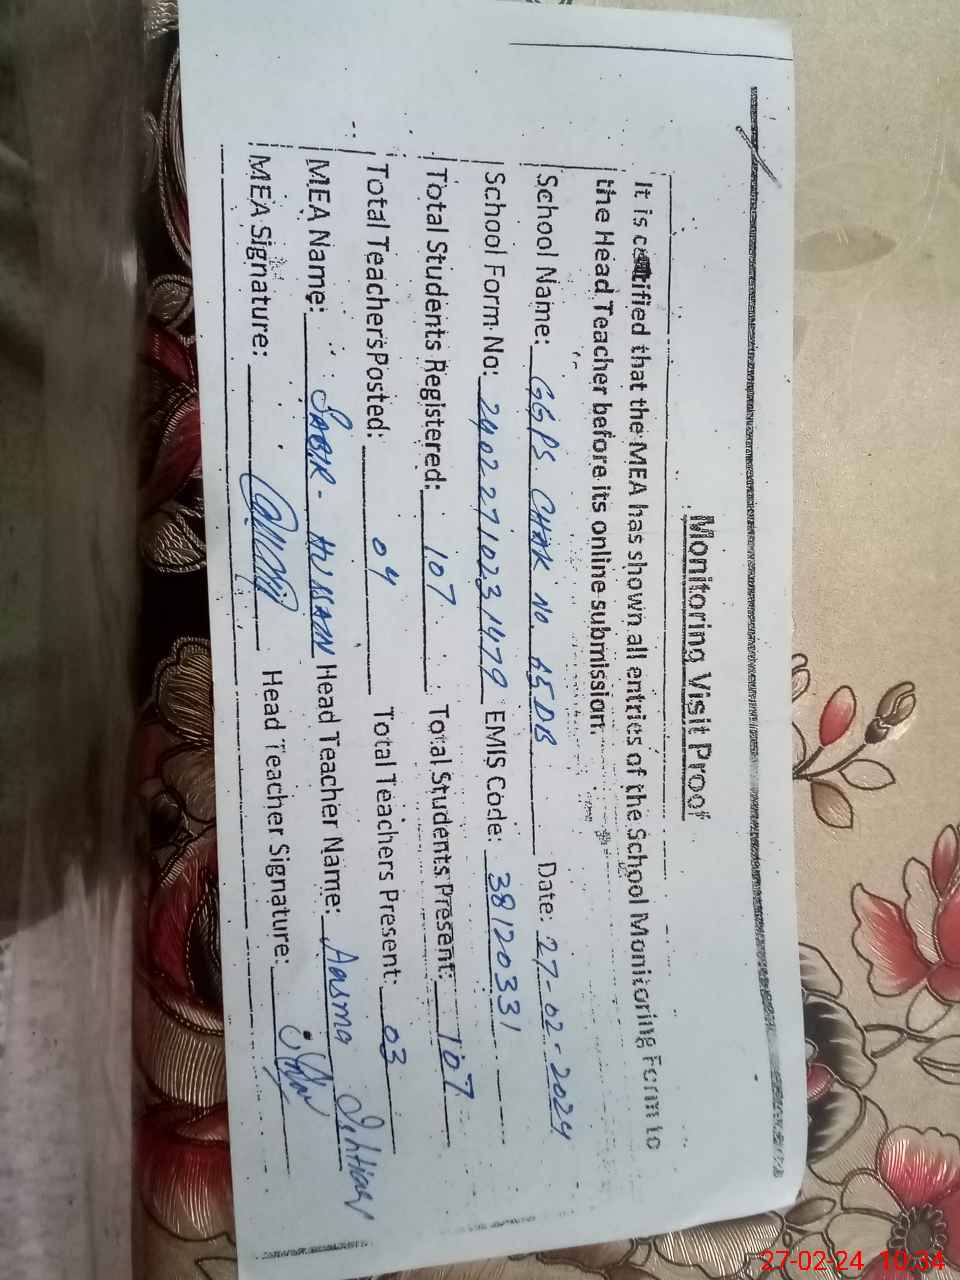 Monitoring Visit Proof
It is certified that the MEA has shown all entries of the School Monitoring Form to
the Head Teacher before its online submission.
School Name: GGPS CHAK NO. 65.DB Date: 27-02-2024
School Form No: 24022710231479 EMIS Code: 38120331
Total Students Registered: 107 Total Students Present: 107
Total Teachers Posted: 04 Total Teachers Present: 03
MEA Name: SABIR HUSSAIN Head Teacher Name: Aasma
MEA Signature: Head Teacher Signature:
27-02-24 10:34